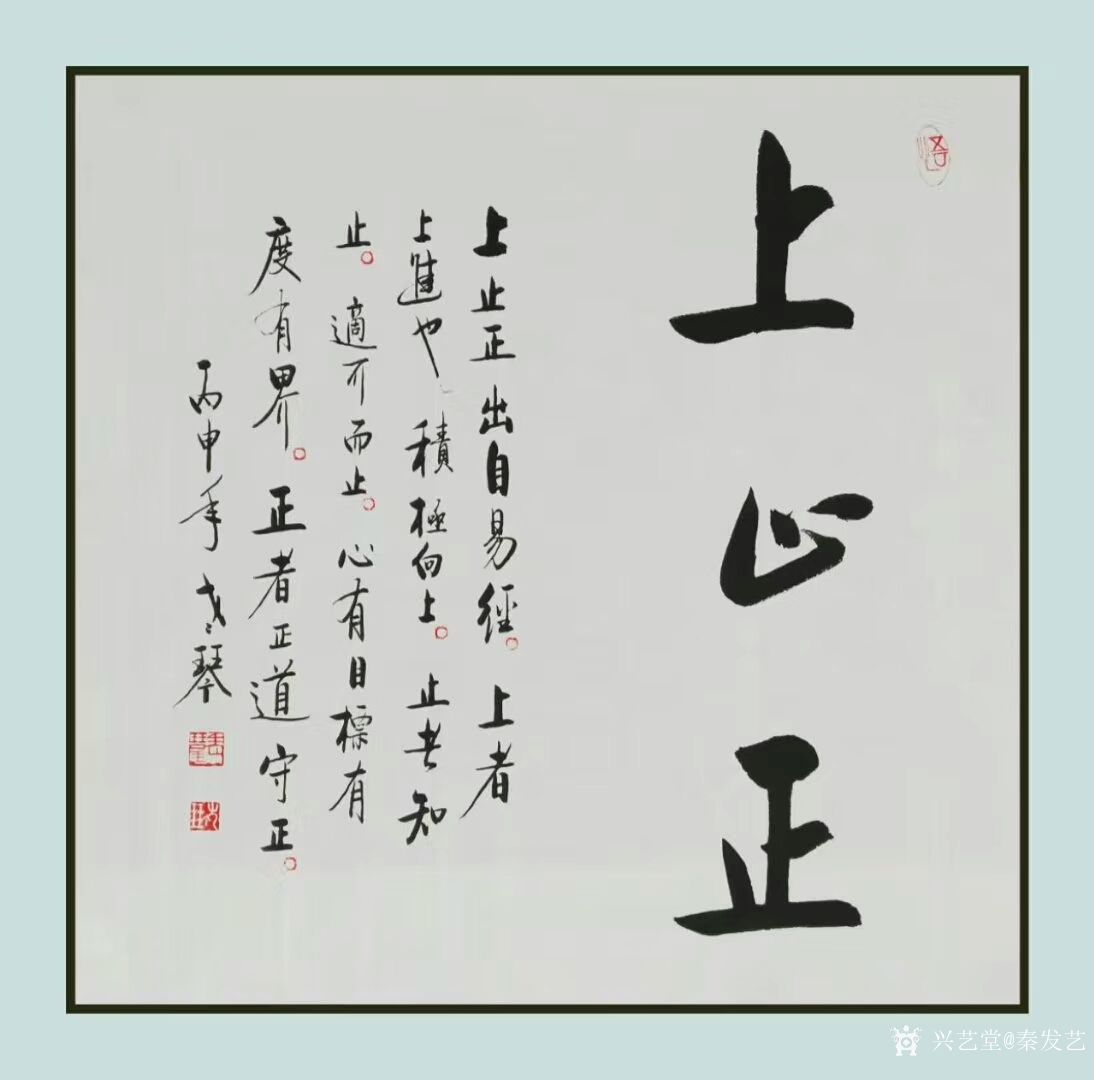 上止正
上止正出自易經。上者
上進也 積極向上。止者知
止。適可而止。心有目標有
度有界。正者正道守正。
丙申年 琴
悟
兴艺堂@秦发艺